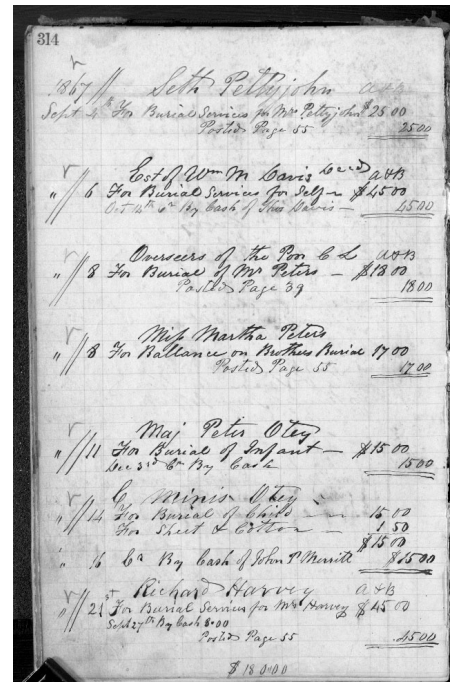 314
1867 // Seth Pettyjohn A&B
Sept 4th For Burial Services for Mrs Pettyjohn $25.00
Posted Page 55 25.00
Est of Wm M Davis Decd A&B
" // 6 For Burial Services for Self — $45.00
Oct 14th Cr By Cash of Davis — 45.00
Overseers of the Poor C L A&B
" // 8 For Burial of Mr Peters — $18.00
Posted Page 39 18.00
Miss Martha Peters
" // 8 For Ballance on Brothers Burial 17.00
Posted Page 55 17.00
Maj Peter Otey
" // 11 For Burial of Infant — $15.00
Dec 3rd Cr By Cash 15.00
C Minis Otey
" // 14 For Burial of Child — 15.00
For Sheet & Cotton — 1.50
$15.00
" 16 Cr By Cash of John P Merritt $15.00
Richard Harvey A&B
" // 21st For Burial Services for Mrs Harvey $45.00
Sept 27th By Cash 5.00
Posted Page 55 45.00
$180.00